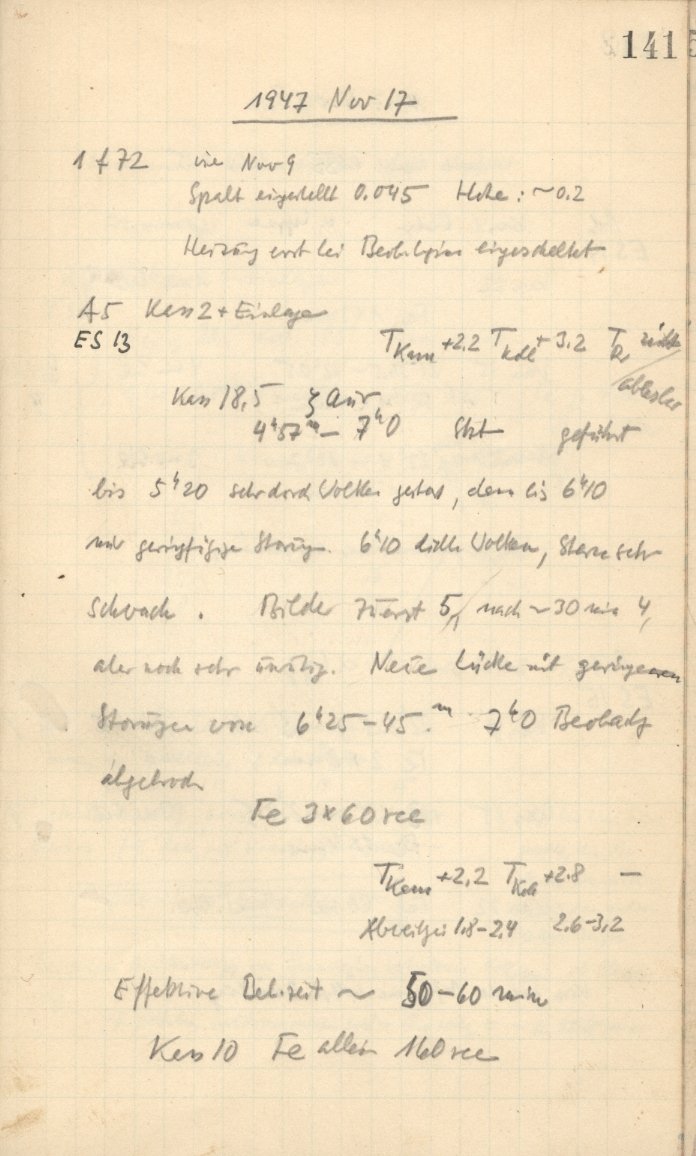 141
1947 Nov 17
1 f 72 wie Nov 9
Spalt eingestellt 0.045 Höhe: ~0.2
Heizung erst bei eingeschaltet
A5 Kass 2 + Einlage
ES 13
T +2.2 T + 3.2 T nicht
ablesbar
Kass 18,5 ζ Aur
4h57m – 7h0 Stzt geführt
bis 5h20 sehr durch Wolken gestört, dann bis 6h10
nur geringfügige Störung. 6h10 dicke Wolken, Stern sehr
schwach. Bilder zuerst 5, nach ~30 min 4,
aber noch sehr unruhig. Neue Lücke mit geringeren
Störungen von 6h25–45.m 7h0 Beobachtg
abgebroch
Fe 3x60 sec
T +2,2 T +2.8 —
1.8–2.4 2.6–3.2
Effektive Bel.zeit ~ 50–60 min
Kass 10 Fe allein 160 sec